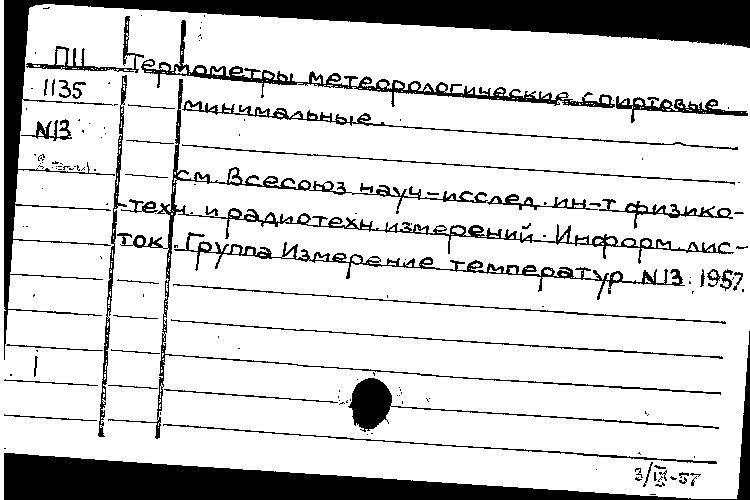 П11 Термометры метеорологические спиртовые
1135 минимальные.
N13
см. Всесоюз науч-исслед. ин-т физико-
-техн. и радиотехн. измерений. Информ. лис-
ток. Группа Измерение температур. N13. 1957.
3/IX-57